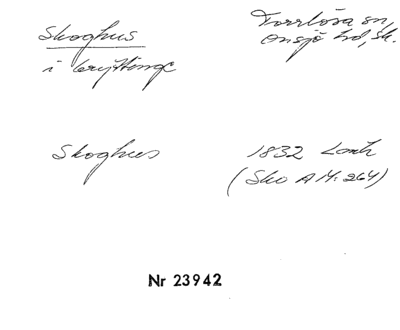 Skoghus
Torrlösa sn,
Onsjö hd, Sk.
i Tryttinge
Skoghus
1832 Lantm
(Sko A M. 264)
Nr 23942